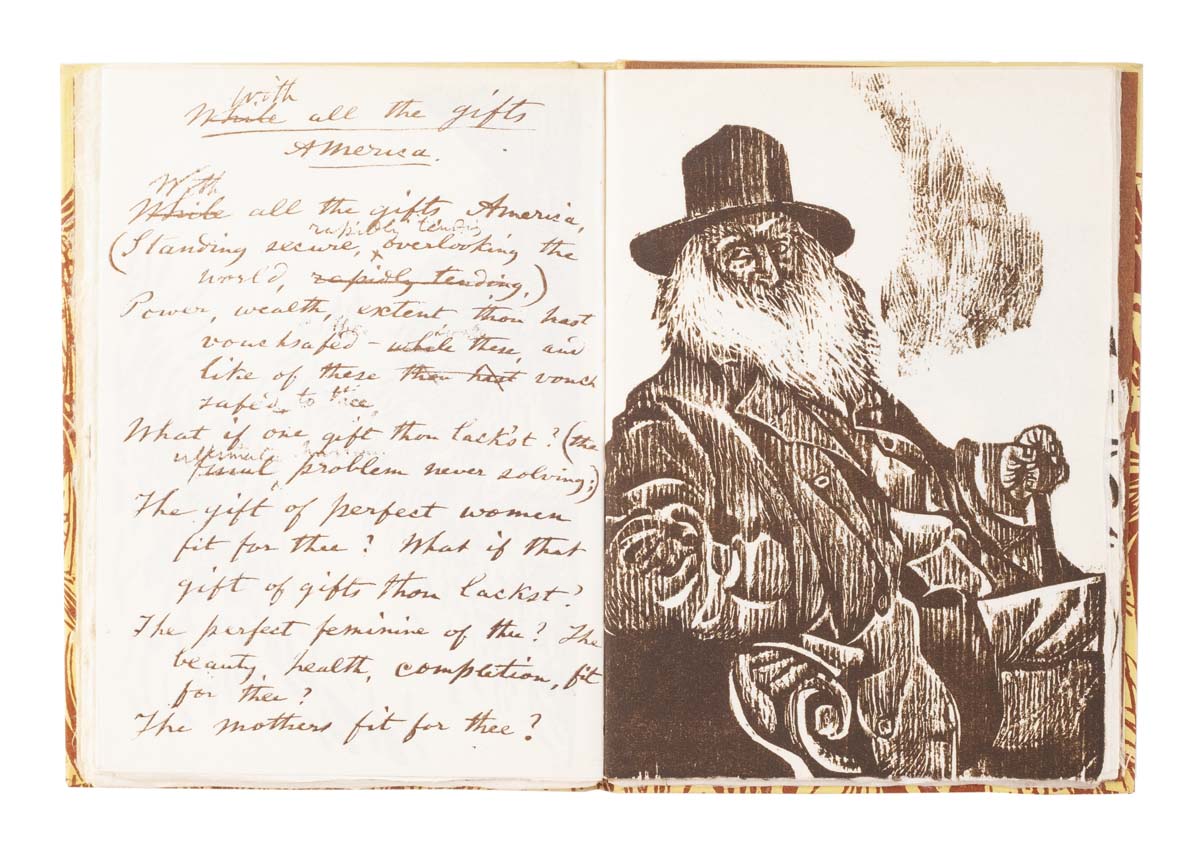 With
While all the gifts
America.
With
While all the gifts America,
rapidly tending
(Standing secure, overlooking the
world, rapidly tending,)
Power, wealth, extent thou hast
vouchsafed - while these, and
like of these thou hast vouch
safed to thee
What if one gift thou lack'st? (the
ultimate human
usual problem never solving;)
The gift of perfect women
fit for thee? What if that
gift of gifts thou lackst?
The perfect feminine of thee? The
beauty, health, completion, fit
for thee?
The mothers fit for thee?